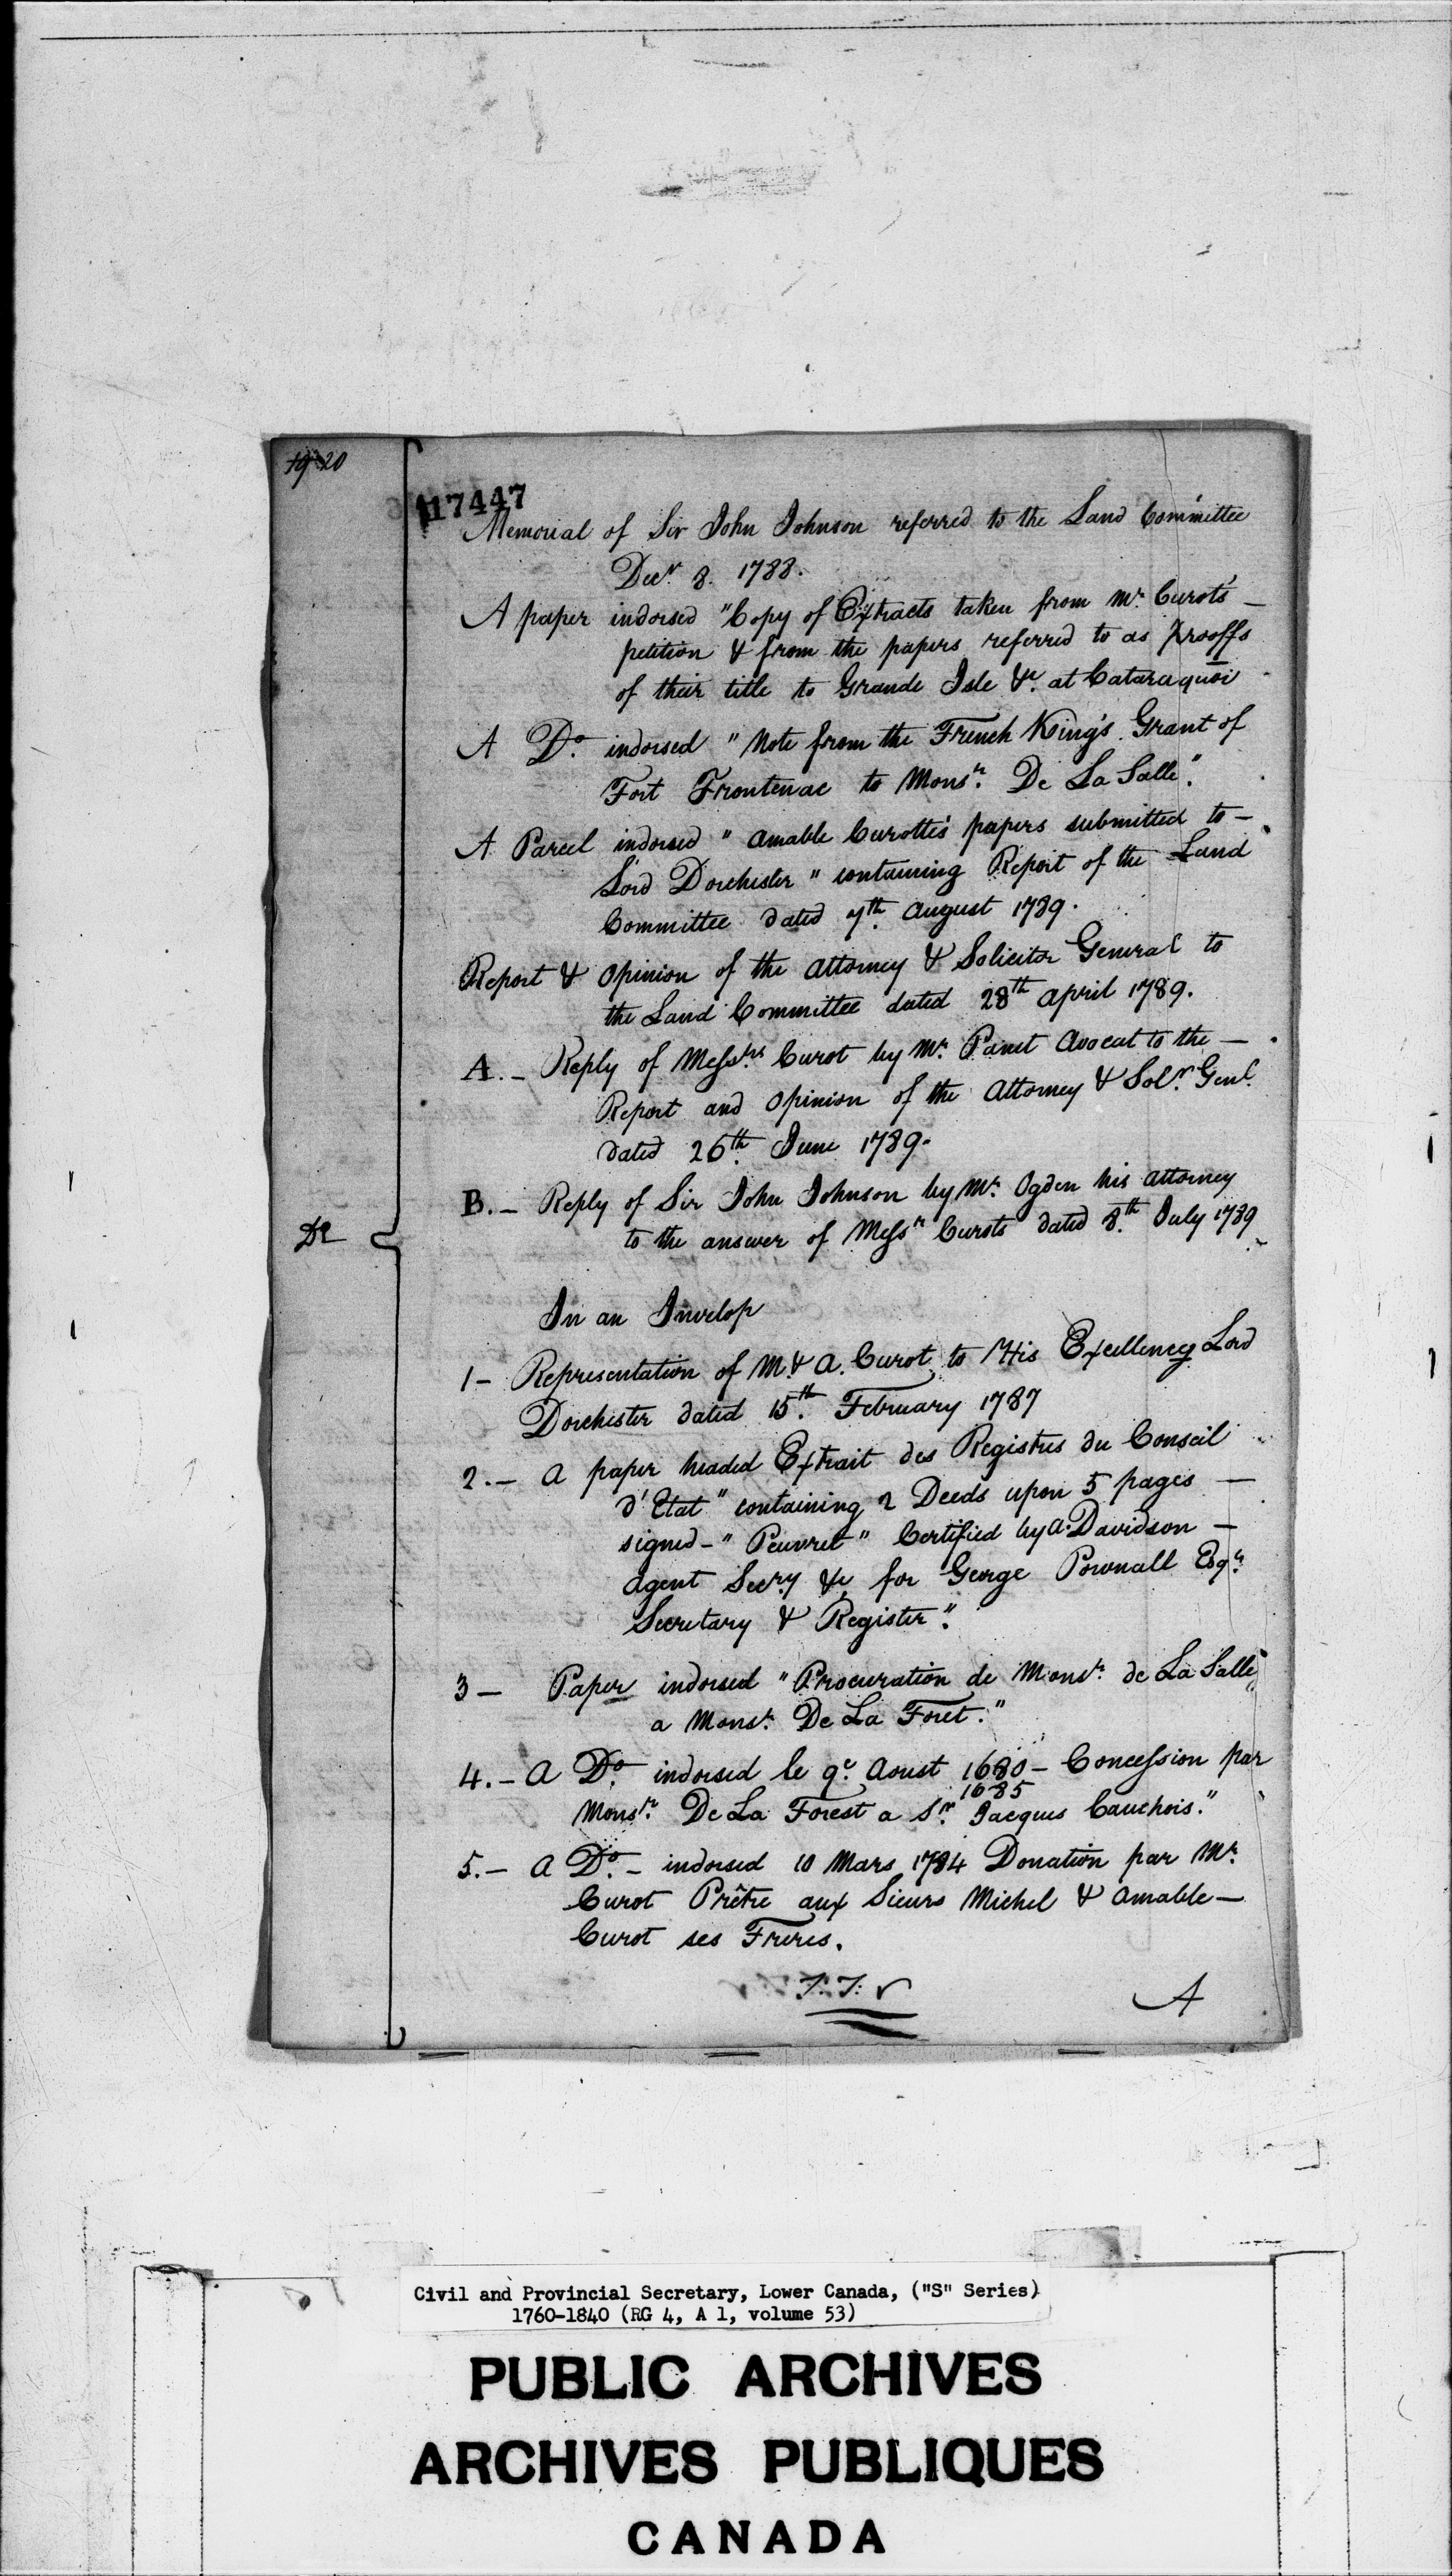 19 20
117447
Memorial of Sir John Johnson referred to the Land Committee
Decr. 8. 1788.
A paper indorsed "Copy of Extracts taken from Mr. Curot's —
petition & from the papers referred to as prooffs
of their title to Grande Isle &c. at Cataraquoi
A Do. indorsed "Note from the French King's Grant of
Fort Frontenac to Monsr. De La Salle".
A Parcel indorsed "Amable Curotte's papers submitted to —
Lord Dorchester" containing Report of the Land
Committee dated 7th. August 1789.
Report & Opinion of the Attorney & Solicitor General to
the Land Committee dated 28th April 1789.
A. — Reply of Messrs. Curot by Mr. Panet Avocat to the —
Report and Opinion of the Attorney & Solr. Genl.
dated 26th. June 1789.
B. — Reply of Sir John Johnson by Mr. Ogden his Attorney
to the answer of Messrs Curots dated 8th. July 1789
In an Invelop
1 — Representation of M. & A. Curot to His Excellency Lord
Dorchester dated 15th. February 1787
2. — A paper headed Extrait des Registres du Conseil
d'Etat" containing 2 Deeds upon 5 pages —
signed — "Peuvret" Certified by A. Davidson —
Agent Secry &c for George Pownall Esqr.
Secretary & Register".
3 — Paper indorsed "Procuration de Monsr. de La Salle
a Monsr. De La Foret."
4. — A Do. indorsed le 9e. Aoust 1680 — Concession par
1685
Monsr. De La Forest a Sr. Jacques Cauchois."
5. — A Do. — indorsed 10 Mars 1784 Donation par Mr.
Curot Prêtre aux Sieurs Michel & Amable —
Curot ses Freres.
A
Civil and Provincial Secretary, Lower Canada, ("S" Series)
1760-1840 (RG 4, A 1, volume 53)
PUBLIC ARCHIVES
ARCHIVES PUBLIQUES
CANADA